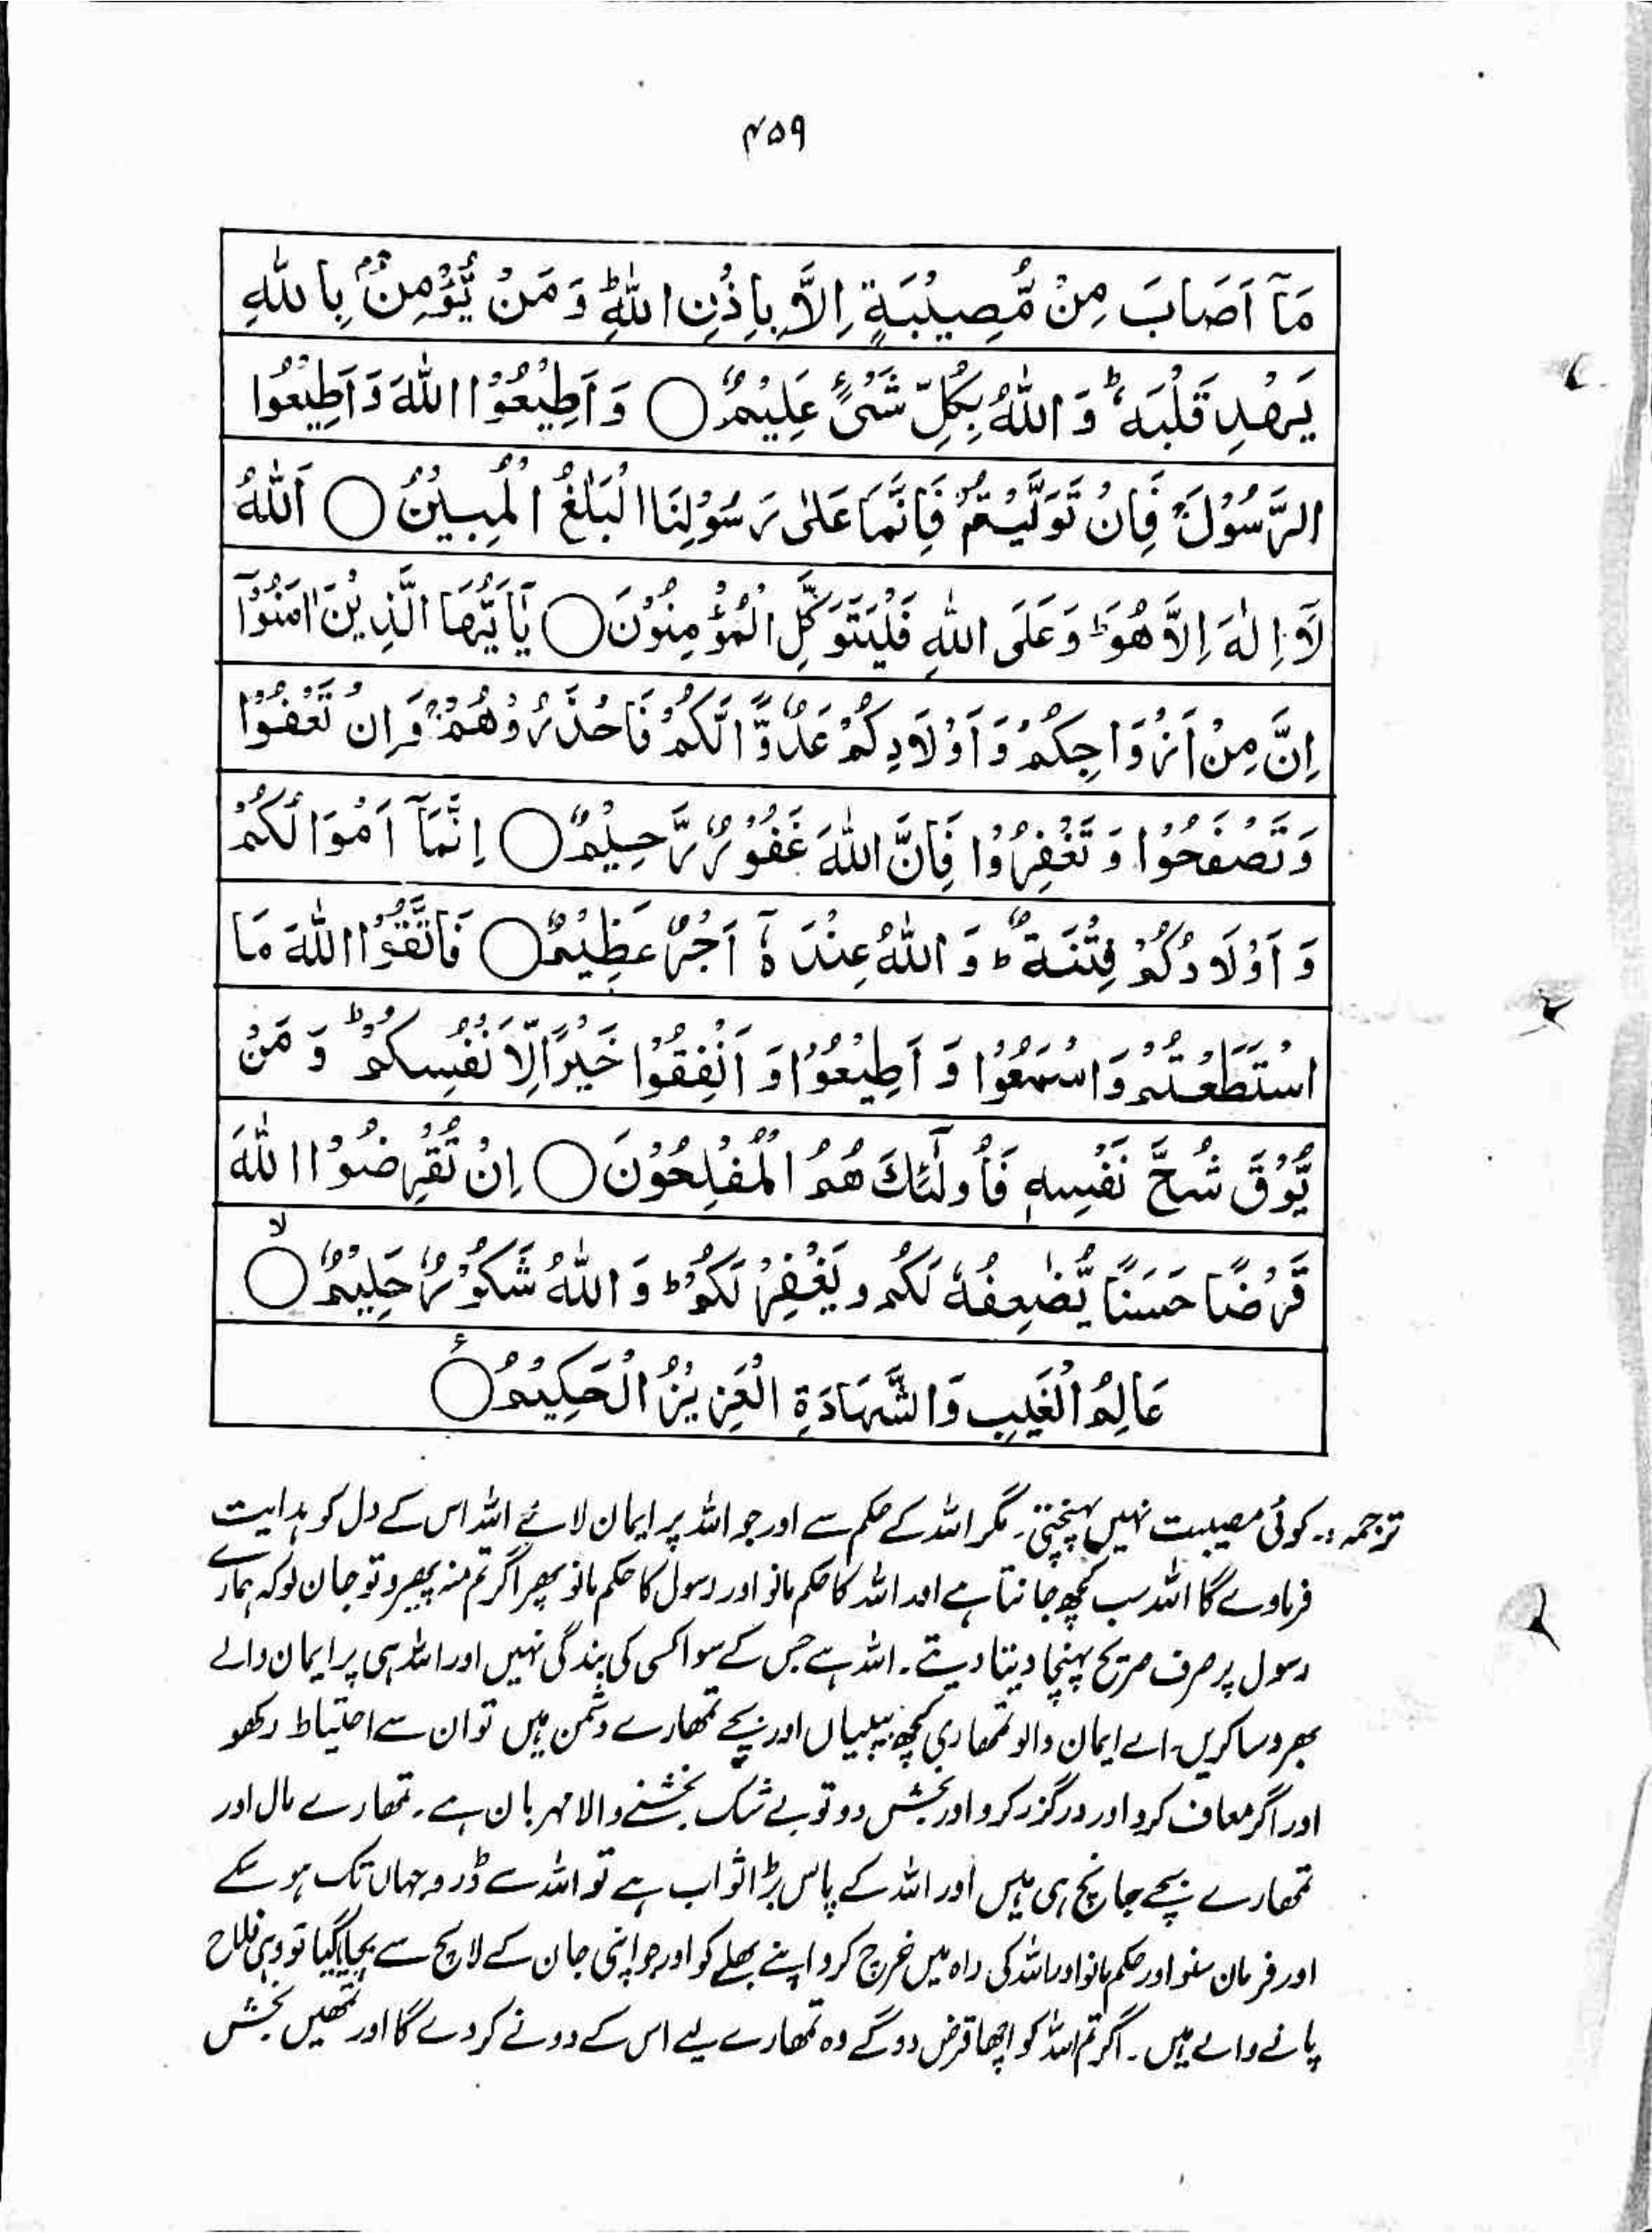 ۴۵۹
مَآ اَصَابَ مِنْ مُّصِیْبَةٍ اِلَّا بِاِذْنِ اللّٰهِؕ وَ مَنْ یُّؤْمِنْۢ بِاللّٰهِ
یَهْدِ قَلْبَهٗؕ وَ اللّٰهُ بِكُلِّ شَیْءٍ عَلِیْمٌ ○ وَ اَطِیْعُوْا اللّٰهَ وَ اَطِیْعُوا
الرَّسُوْلَۚ فَاِنْ تَوَلَّیْتُمْ فَاِنَّمَا عَلٰى رَسُوْلِنَا الْبَلٰغُ الْمُبِیْنُ ○ اَللّٰهُ
لَاۤ اِلٰهَ اِلَّا هُوَؕ وَ عَلَى اللّٰهِ فَلْیَتَوَكَّلِ الْمُؤْمِنُوْنَ ○ یٰۤاَیُّهَا الَّذِیْنَ اٰمَنُوْۤا
اِنَّ مِنْ اَزْوَاجِكُمْ وَ اَوْلَادِكُمْ عَدُوًّا لَّكُمْ فَاحْذَرُوْهُمْۚ وَ اِنْ تَعْفُوْا
وَ تَصْفَحُوْا وَ تَغْفِرُوْا فَاِنَّ اللّٰهَ غَفُوْرٌ رَّحِیْمٌ ○ اِنَّمَاۤ اَمْوَالُكُمْ
وَ اَوْلَادُكُمْ فِتْنَةٌؕ وَ اللّٰهُ عِنْدَهٗۤ اَجْرٌ عَظِیْمٌ ○ فَاتَّقُوْا اللّٰهَ مَا
اسْتَطَعْتُمْ وَ اسْمَعُوْا وَ اَطِیْعُوْا وَ اَنْفِقُوْا خَیْرًا لِّاَنْفُسِكُمْؕ وَ مَنْ
یُّوْقَ شُحَّ نَفْسِهٖ فَاُولٰٓئِكَ هُمُ الْمُفْلِحُوْنَ ○ اِنْ تُقْرِضُوْا اللّٰهَ
قَرْضًا حَسَنًا یُّضٰعِفْهُ لَكُمْ و یَغْفِرْ لَكُمْؕ وَ اللّٰهُ شَكُوْرٌ حَلِیْمٌ ○ۙ
عَالِمُ الْغَیْبِ وَ الشَّهَادَةِ الْعَزِیْزُ الْحَكِیْمُ ○
ترجمہ :۔ کوئی مصیبت نہیں پہنچتی۔ مگر اللہ کے حکم سے اور جو اللہ پر ایمان لائے اللہ اس کے دل کو ہدایت
فرماوے گا اللہ سب کچھ جانتا ہے اور اللہ کا حکم مانو اور رسول کا حکم مانو پھر اگر تم منہ پھیرو تو جان لو کہ ہمارے
رسول پر صرف صریح پہنچا دینا دیتے۔ اللہ ہے جس کے سوا کسی کی بندگی نہیں اور اللہ ہی پر ایمان والے
بھروسا کریں۔ اے ایمان والو تمھاری کچھ بیبیاں اور بچے تمھارے دشمن ہیں تو ان سے احتیاط رکھو
اور اگر معاف کرو اور درگزر کرو اور بخش دو تو بے شک بخشنے والا مہربان ہے۔ تمھارے مال اور
تمھارے بچے جانچ ہی ہیں اور اللہ کے پاس بڑا ثواب ہے تو اللہ سے ڈرو جہاں تک ہو سکے
اور فرمان سنو اور حکم مانو اور اللہ کی راہ میں خرچ کرو اپنے بھلے کو اور جو اپنی جان کے لالچ سے بچایا گیا تو وہی فلاح
پانے والے ہیں۔ اگر تم اللہ کو اچھا قرض دو گے وہ تمھارے لیے اس کے دونے کر دے گا اور تمھیں بخش